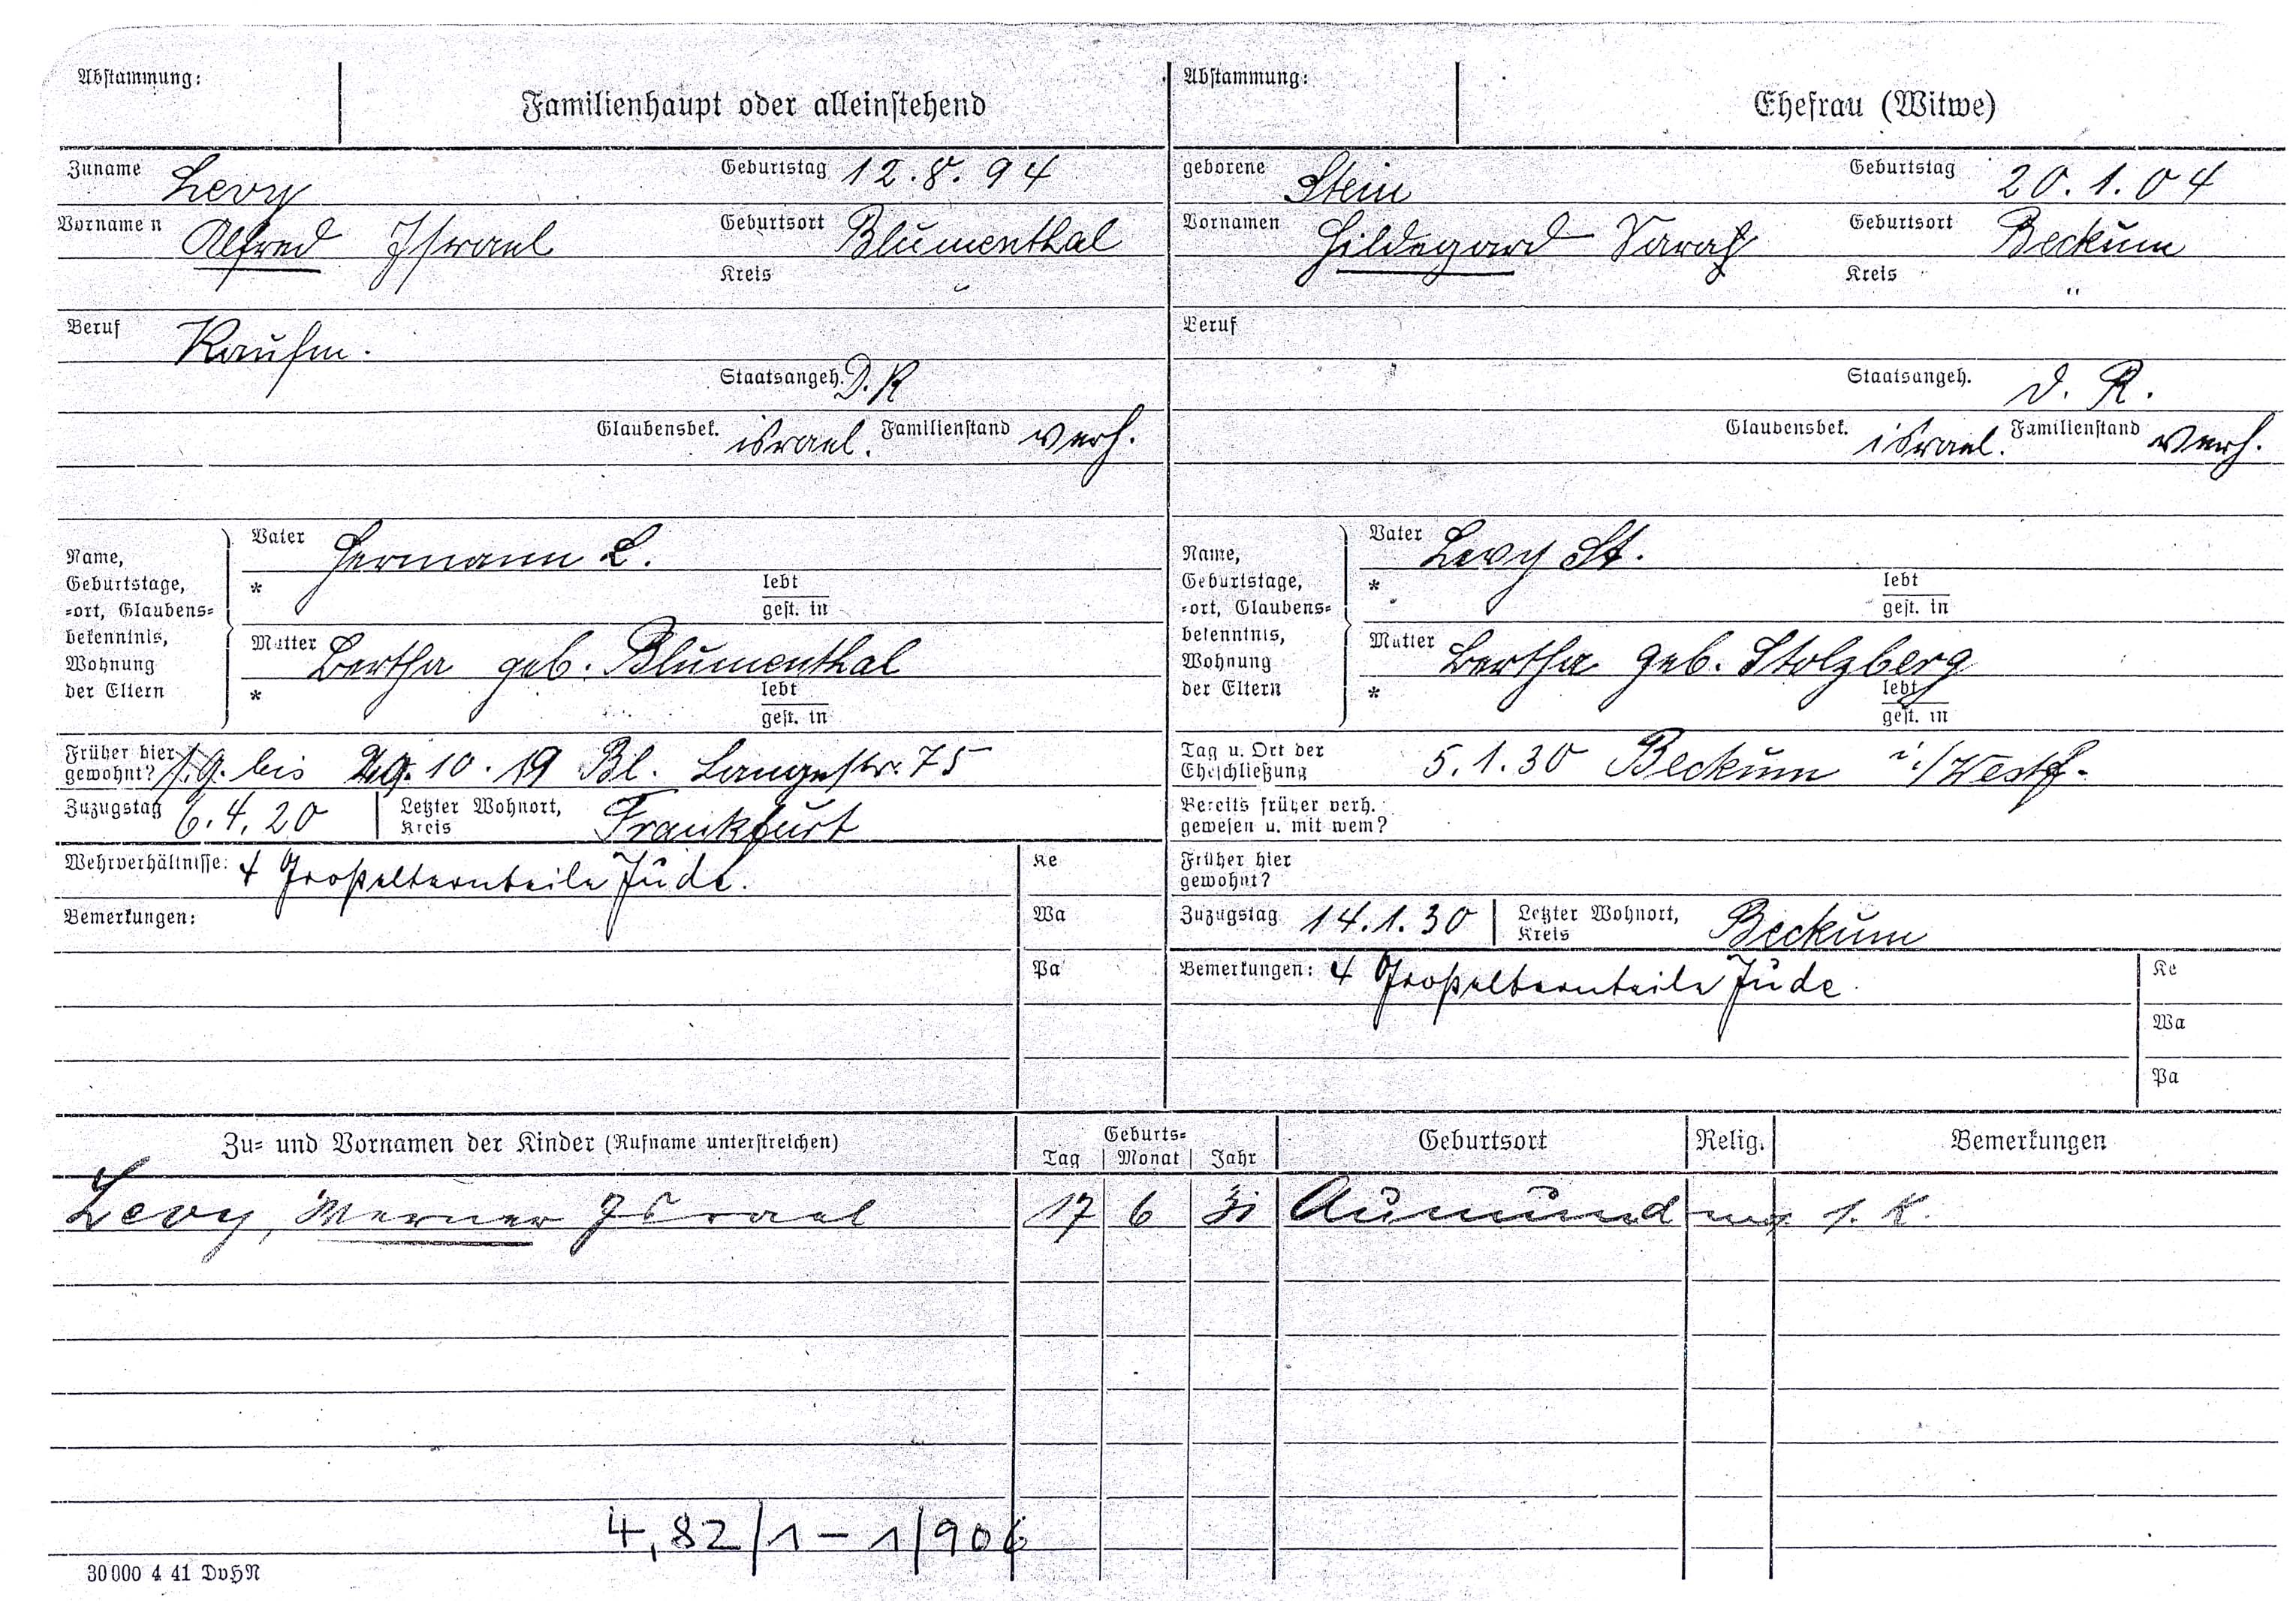 Abstammung:
Familienhaupt oder alleinstehend
Zuname Levy Geburtstag 12.8.94
Vornamen Alfred Israel Geburtsort Blumenthal
Kreis "
Beruf Kaufm.
Staatsangeh. D.R
Glaubensbek. israel. Familienstand verh.
Name, Geburtstage, -ort, Glaubens-bekenntnis, Wohnung der Eltern
Vater Hermann L.
* lebt gest. in
Mutter Bertha geb. Blumenthal
* lebt gest. in
Früher hier gewohnt? bis 29.10.19 Bl. Langestr. 75
Zuzugstag 6.4.20 Letzter Wohnort, Kreis Frankfurt
Wehrverhältnisse: 4 Großelternteile Jude.
Bemerkungen:
Ke
Wa
Pa
Abstammung:
Ehefrau (Witwe)
geborene Stein Geburtstag 20.1.04
Vornamen Hildegard Sarah Geburtsort Beckum
Kreis "
Beruf
Staatsangeh. D.R.
Glaubensbek. israel. Familienstand verh.
Name, Geburtstage, -ort, Glaubens-bekenntnis, Wohnung der Eltern
Vater Levy St.
* lebt gest. in
Mutter Bertha geb. Stolzberg
* lebt gest. in
Tag u. Ort der Eheschließung 5.1.30 Beckum i./Westf.
Bereits früher verh. gewesen u. mit wem?
Früher hier gewohnt?
Zuzugstag 14.1.30 Letzter Wohnort, Kreis Beckum
Bemerkungen: 4 Großelternteile Jude
Ke
Wa
Pa
Zu- und Vornamen der Kinder (Rufname unterstreichen) Geburts- Tag Monat Jahr Geburtsort Relig. Bemerkungen
Levy, Werner Israel 17 6 31 Aumund 1. K.
4,82/1-1/906
30000 4 41 DvHN